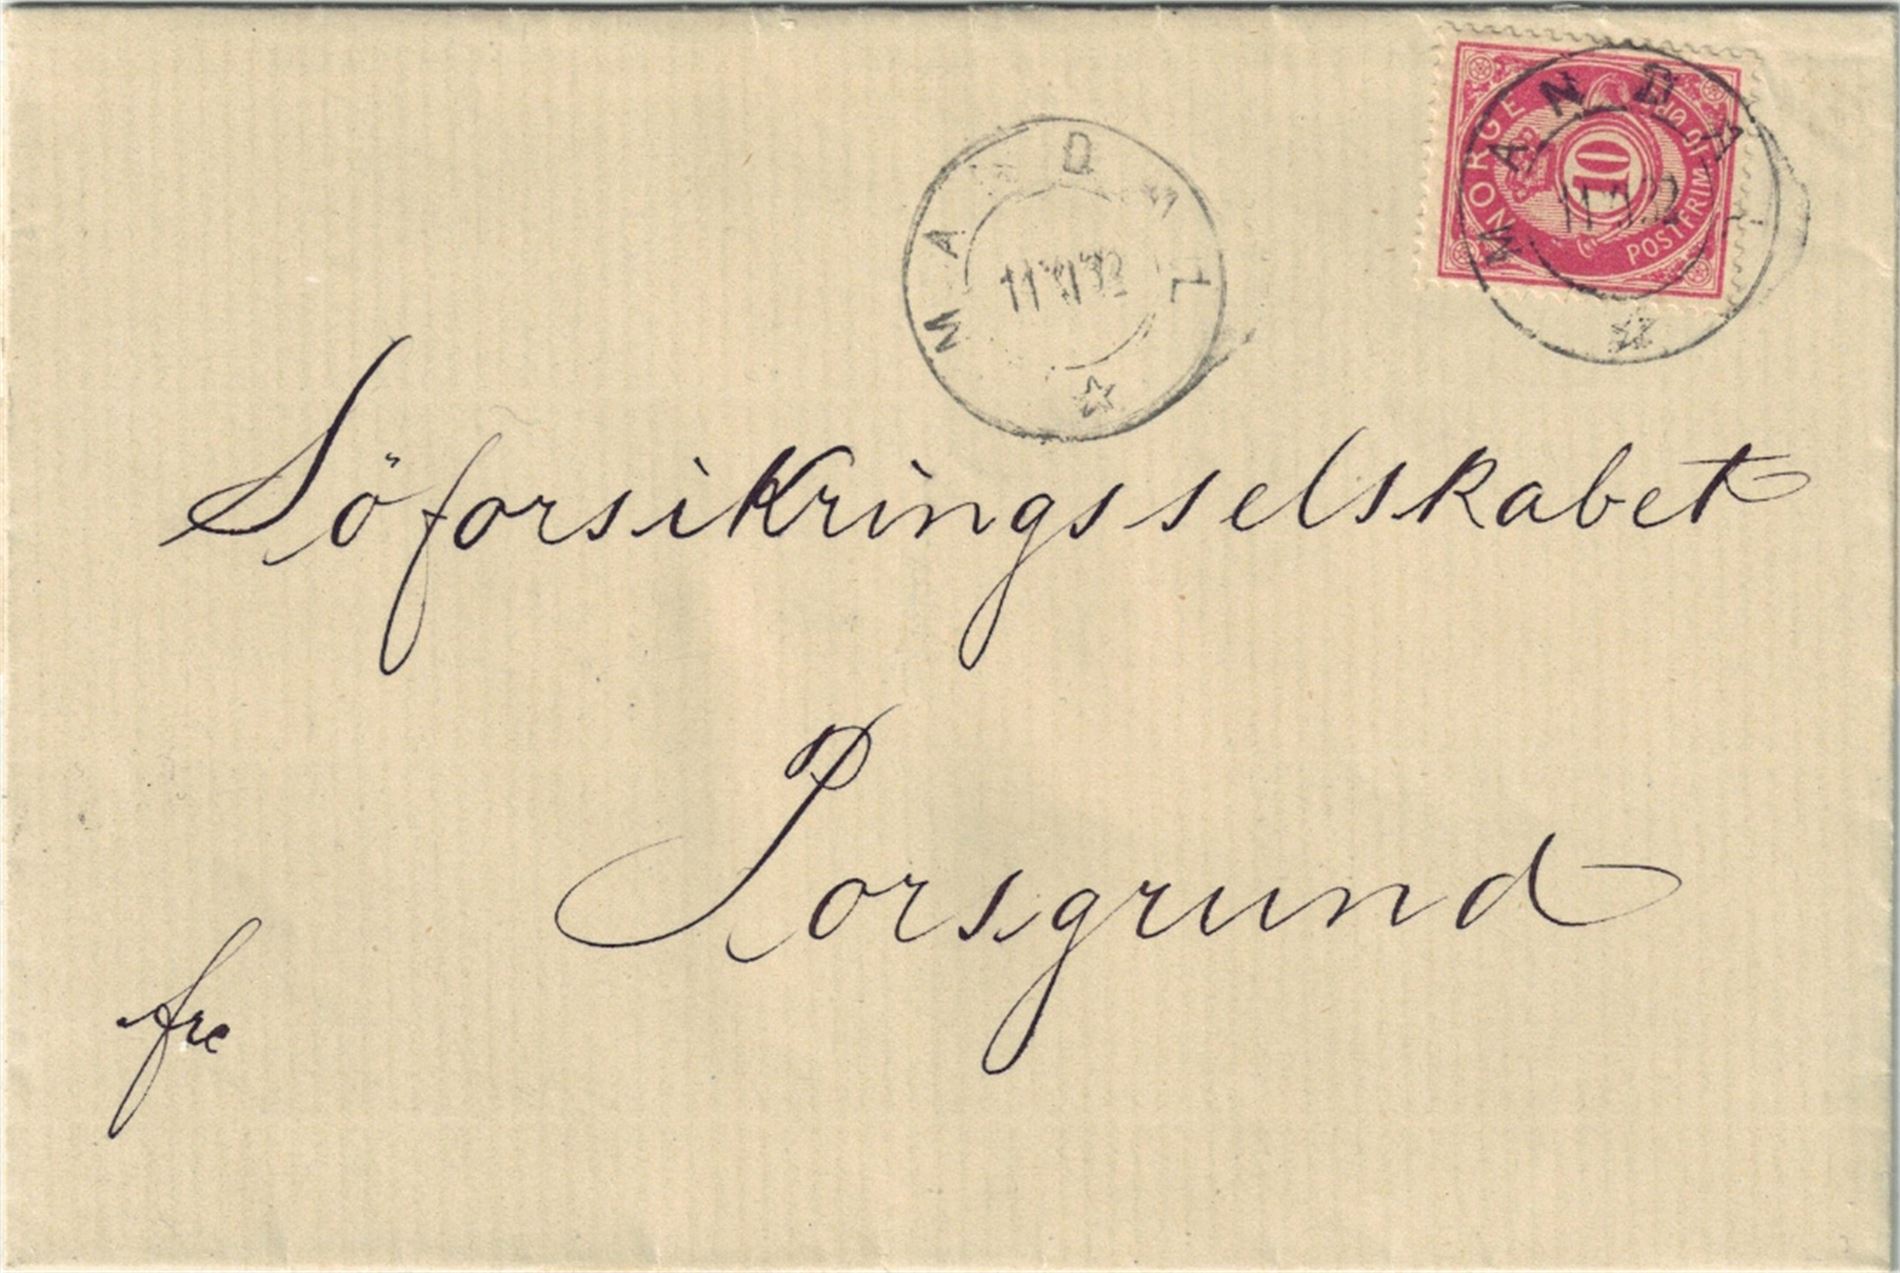 NORGE
10
POSTFRIM
MANDAL
MANDAL
Söforsikringsselskabet
Porsgrund
fre